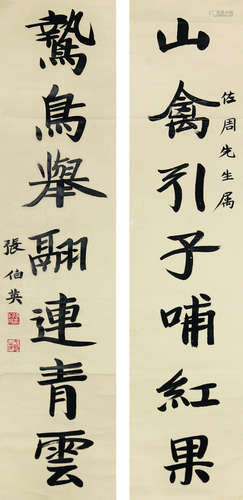 佐周先生属
山禽引子哺紅果
鷙鳥舉翮連青雲
張伯英